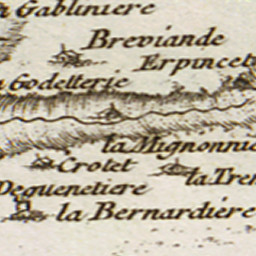 a Gabliniere
Breviande
Erpincet
a Godetterie
la Mignonnie
Crotet
la Tren
Deguenetiere
la Bernardiere